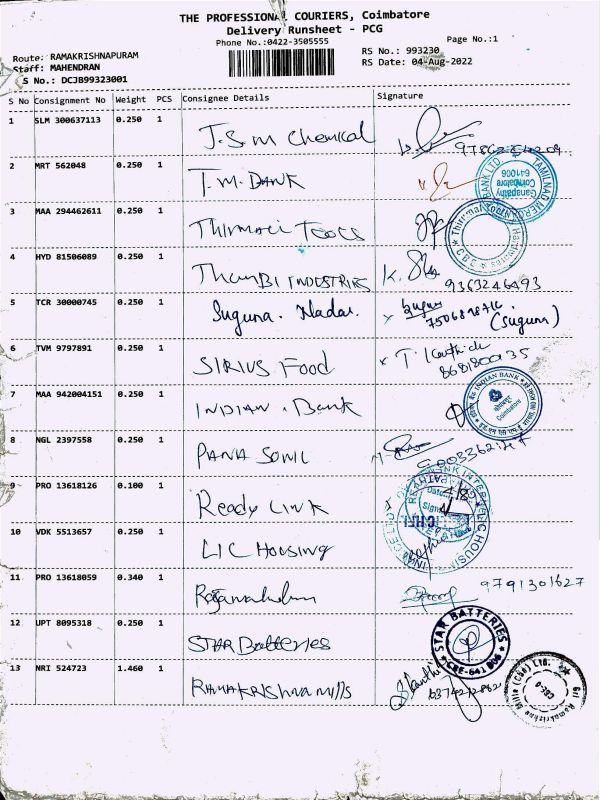 THE PROFESSIONAL COURIERS, Coimbatore
Delivery Runsheet - PCG
Phone No.:0422-3505555
Page No.:1
Route: RAMAKRISHNAPURAM
RS No.: 993230
Staff: MAHENDRAN
RS Date: 04-Aug-2022
S No.: DCJB99323001
S No Consignment No Weight PCS Consignee Details Signature
1 SLM 300637113 0.250 1 J.S.M Chemical
2 MRT 562048 0.250 1 T.M. BANK
TAMIL NAD MERC BANK LTD
Ganapathy
Coimbatore
641006
3 MAA 294462611 0.250 1 THIRMALI TOOLS
4 HYD 81506089 0.250 1 ThamBI INDUSTRIES K.
9363246493
5 TCR 30000745 0.250 1 Suguna. Nadar.
(Suguna)
6 TVM 9797891 0.250 1 SIRIUS Food
7 MAA 942004151 0.250 1 INDIAN . Bank
INDIAN BANK
Coimbatore
8 NGL 2397558 0.250 1 PANA SONIC
9 PRO 13618126 0.100 1 Ready Link
10 VDK 5513657 0.250 1 LIC Housing
11 PRO 13618059 0.340 1
9791301627
12 UPT 8095318 0.250 1 STAR Batteries
STAR BATTERIES
CBE-641 006
13 NRI 524723 1.460 1 RAMAKRISHNA Mills
Sri Ramakrishna Mills (Cbe) Ltd.